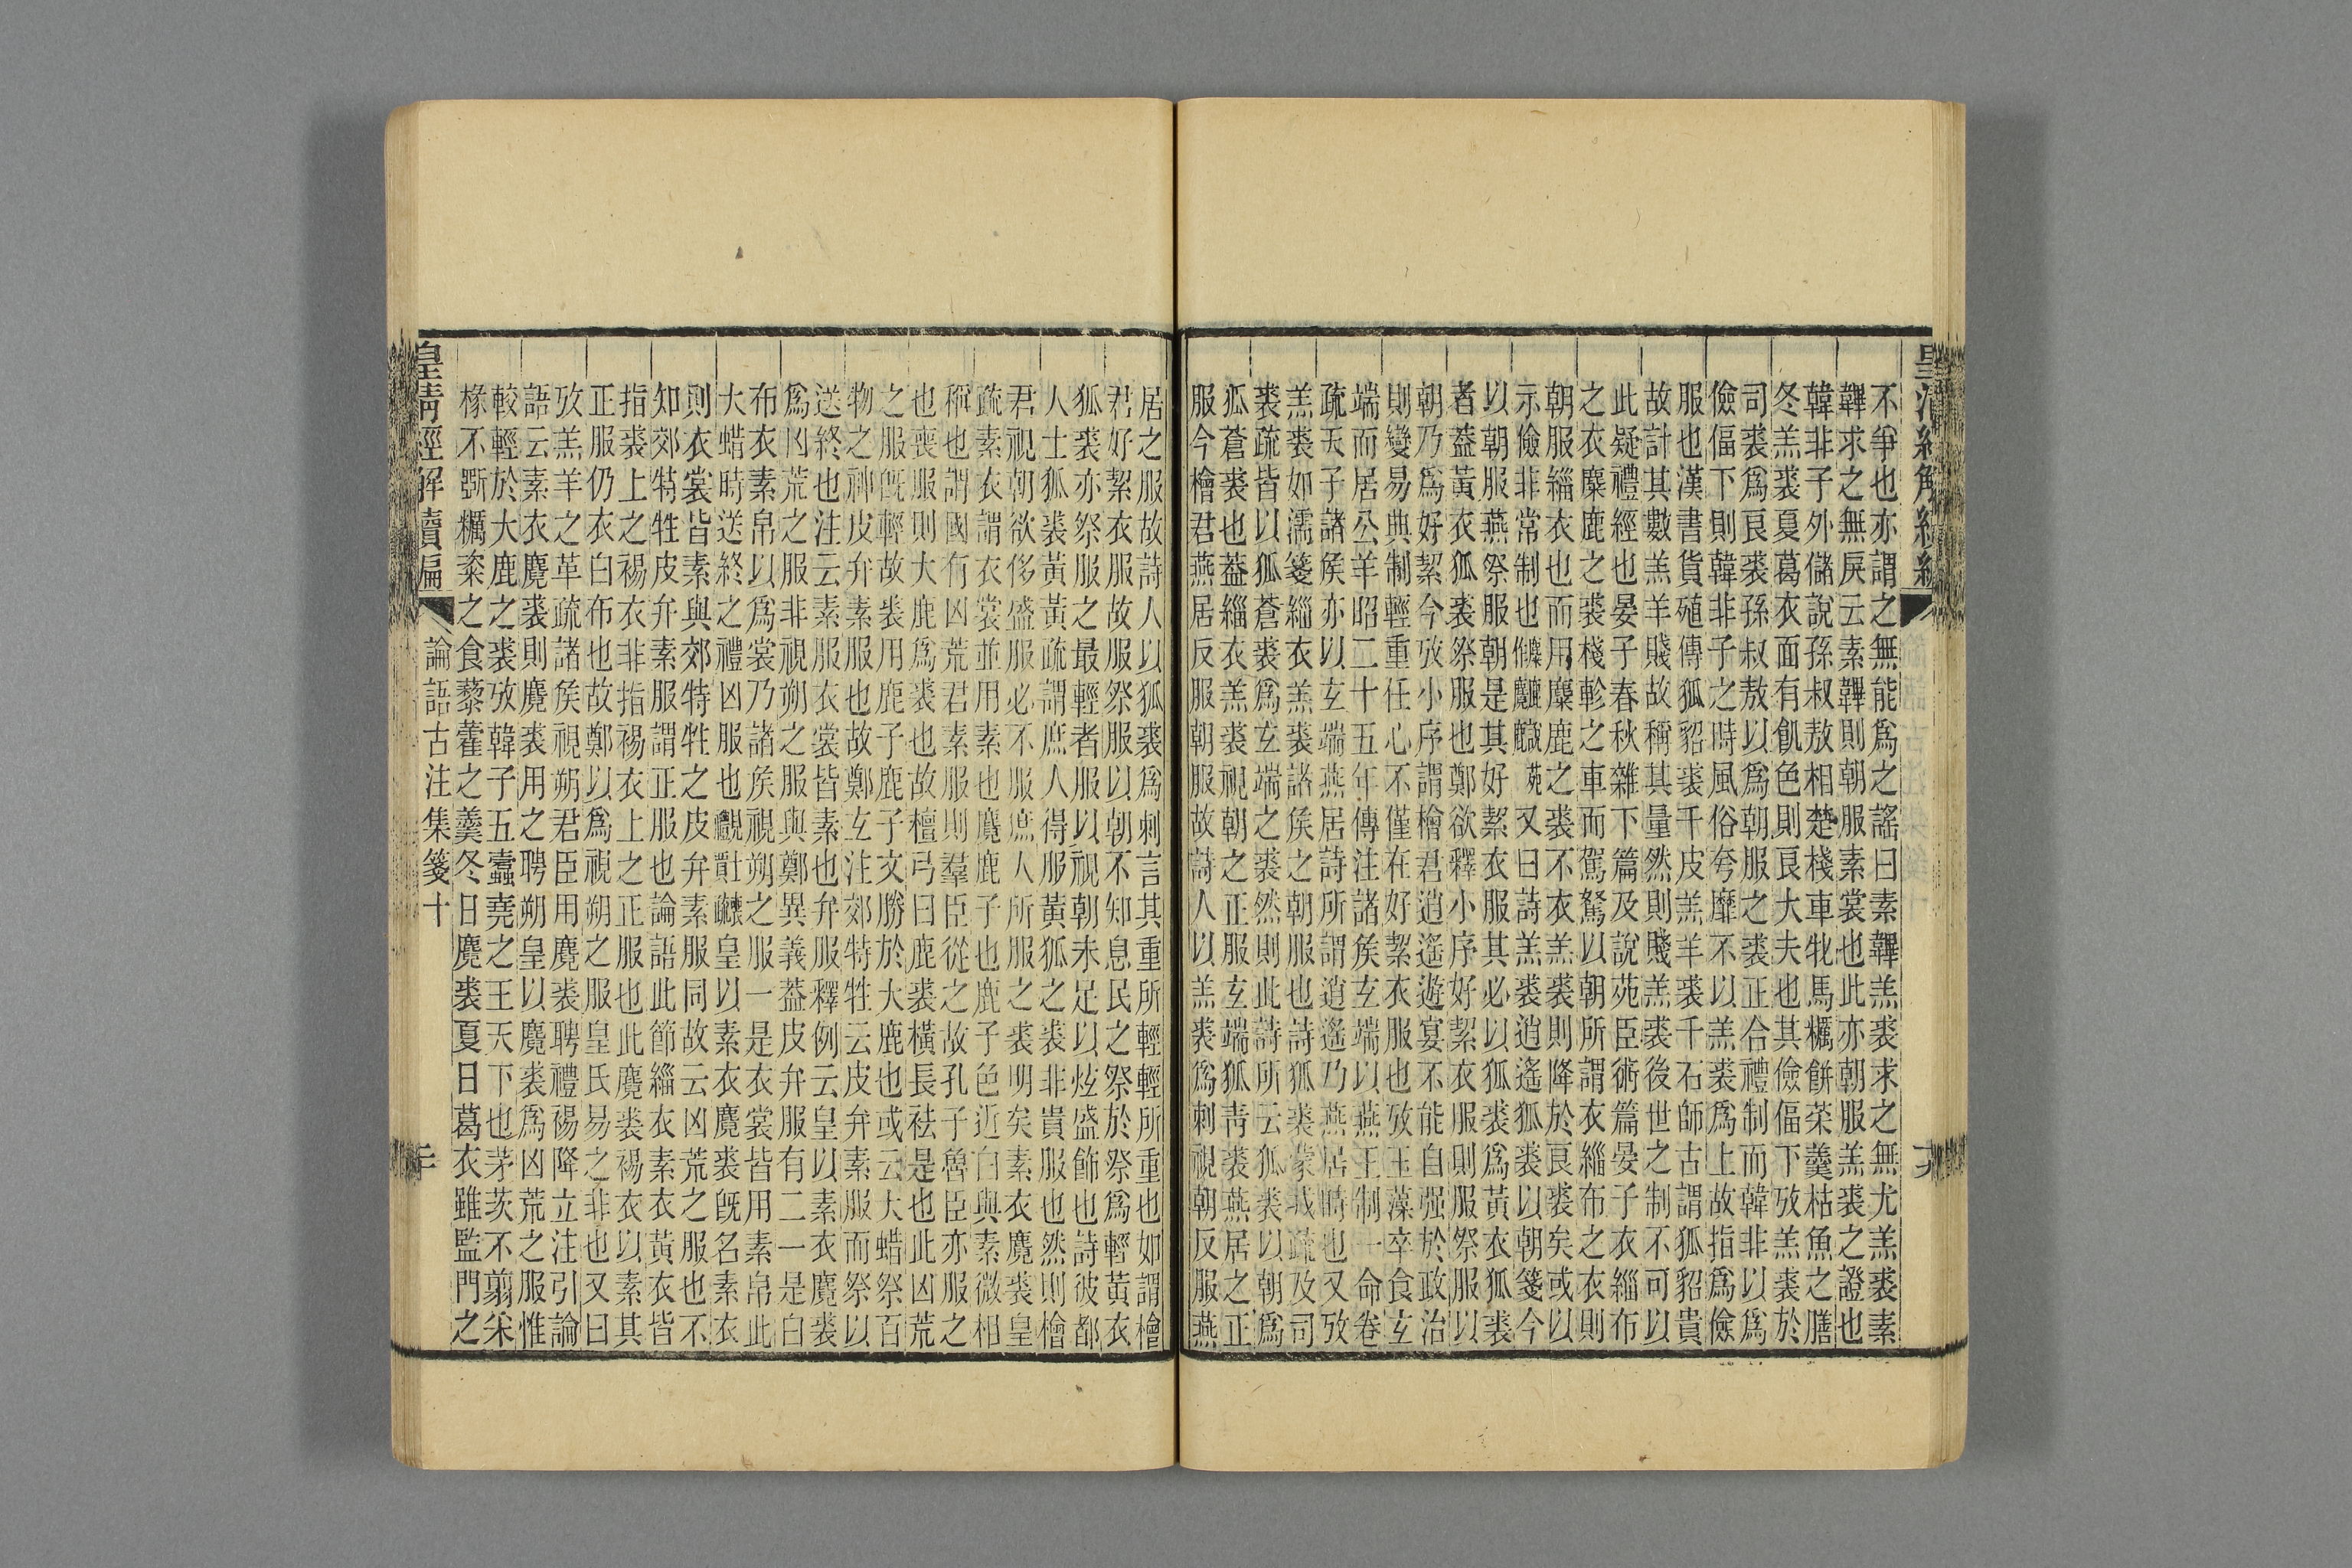 皇清經解續編
不爭也亦謂之無能爲之謠曰素韠羔裘求之無尤羔裘素
韠求之無戾云素韠則朝服素裳也此亦朝服羔裘之證也
韓非子外儲說孫叔敖相楚棧車牝馬糲餅菜羹枯魚之膳
冬羔裘夏葛衣面有飢色則良大夫也其儉偪下攷羔裘於
司裘爲良裘孫叔敖以爲朝服之裘正合禮制而韓非以爲
儉偪下則韓非子之時風俗夸靡不以羔裘爲上故指爲儉
服也漢書貨殖傳狐貂裘千皮羔羊裘千石師古謂狐貂貴
故計其數羔羊賤故稱其量然則賤羔裘後世之制不可以
此疑禮經也晏子春秋雜下篇及說苑臣術篇晏子衣緇布
之衣麋鹿之裘棧軫之車而駕駑以朝所謂衣緇布之衣則
朝服緇衣也而用麋鹿之裘不衣羔裘則降於良裘矣或以
示儉非常制也又曰詩羔裘逍遙狐裘以朝箋今
以朝服燕祭服朝是其好絜衣服其必以狐裘爲黃衣狐裘
者蓋黃衣狐裘祭服也鄭欲釋小序好絜衣服則服祭服以
朝乃爲好絜今攷小序謂檜君逍遙遊宴不能自强於政治
則變易典制輕重任心不僅在好絜衣服也攷玉藻卒食玄
端而居公羊昭二十五年傳注諸侯玄端以燕王制一命卷
疏天子諸侯亦以玄端燕居詩所謂逍遙乃燕居時也又攷
羔裘如濡箋緇衣羔裘諸侯之朝服也詩狐裘蒙戎疏及司
裘疏皆以狐蒼裘爲玄端之裘然則此詩所云狐裘以朝爲
狐蒼裘也蓋緇衣羔裘視朝之正服玄端狐青裘燕居之正
服今檜君燕居反服朝服故詩人以羔裘爲刺視朝反服燕
居之服故詩人以狐裘爲刺言其重所輕輕所重也如謂檜
君好絜衣服故服祭服以朝不知息民之祭於祭爲輕黃衣
狐裘亦祭服之最輕者服以視朝未足以炫盛飾也詩彼都
人士狐裘黃黃疏謂庶人得服黃狐之裘非貴服也然則檜
君視朝欲侈盛服必不服庶人所服之裘明矣素衣麑裘皇
疏素衣謂衣裳並用素也麑鹿子也鹿子色近白與素微相
稱也謂國有凶荒君素服則羣臣從之故孔子魯臣亦服之
也喪服則大鹿爲裘也故檀弓曰鹿裘橫長袪是也此凶荒
之服既輕故裘用鹿子鹿子文勝於大鹿也或云大蜡祭百
物之神皮弁素服也故鄭玄注郊特牲云皮弁素服而祭以
送終也注云素服衣裳皆素也弁服釋例云皇以素衣麑裘
爲凶荒之服非視朔之服與鄭異義蓋皮弁服有二一是白
布衣素帛以爲裳乃諸侯視朔之服一是衣裳皆用素帛此
大蜡時送終之禮凶服也皇以素衣麑裘既名素衣
則衣裳皆素與郊特牲之皮弁素服同故云凶荒之服也不
知郊特牲皮弁素服謂正服也論語此節緇衣素衣黃衣皆
指裘上之裼衣非指裼衣上之正服也此麑裘裼衣以素其
正服仍衣白布也故鄭以爲視朔之服皇氏易之非也又曰
攷羔羊之革疏諸侯視朔君臣用麑裘聘禮裼降立注引論
語云素衣麑裘則麑裘用之聘朔皇以麑裘爲凶荒之服惟
較輕於大鹿之裘攷韓子五蠹堯之王天下也茅茨不翦采
椽不斲糲粢之食藜藿之羹冬日麑裘夏日葛衣雖監門之
皇清經解續編 論語古注集箋十